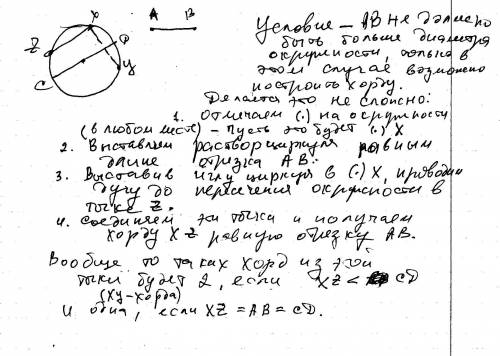 X
A B
Z
D
C
У
Условие - AB не должно
быть больше диаметра
окружности, только в
этом случае возможно
построить хорду.
Делается это не сложно:
1. Отмечаем (.) на окружности
(в любом месте) - пусть это будет (.) X
2. Выставляем раствор циркуля равным
длине отрезка AB.
3. Выставив иглу циркуля в (.) X, проводим
дугу до пересечения окружности в
точке Z.
4. Соединяем эти точки и получаем
хорду XZ равную отрезку AB.
Вообще то таких хорд из этой
точки будет 2, если XZ < CD
(ХУ-хорда)
и одна, если XZ = AB = CD.